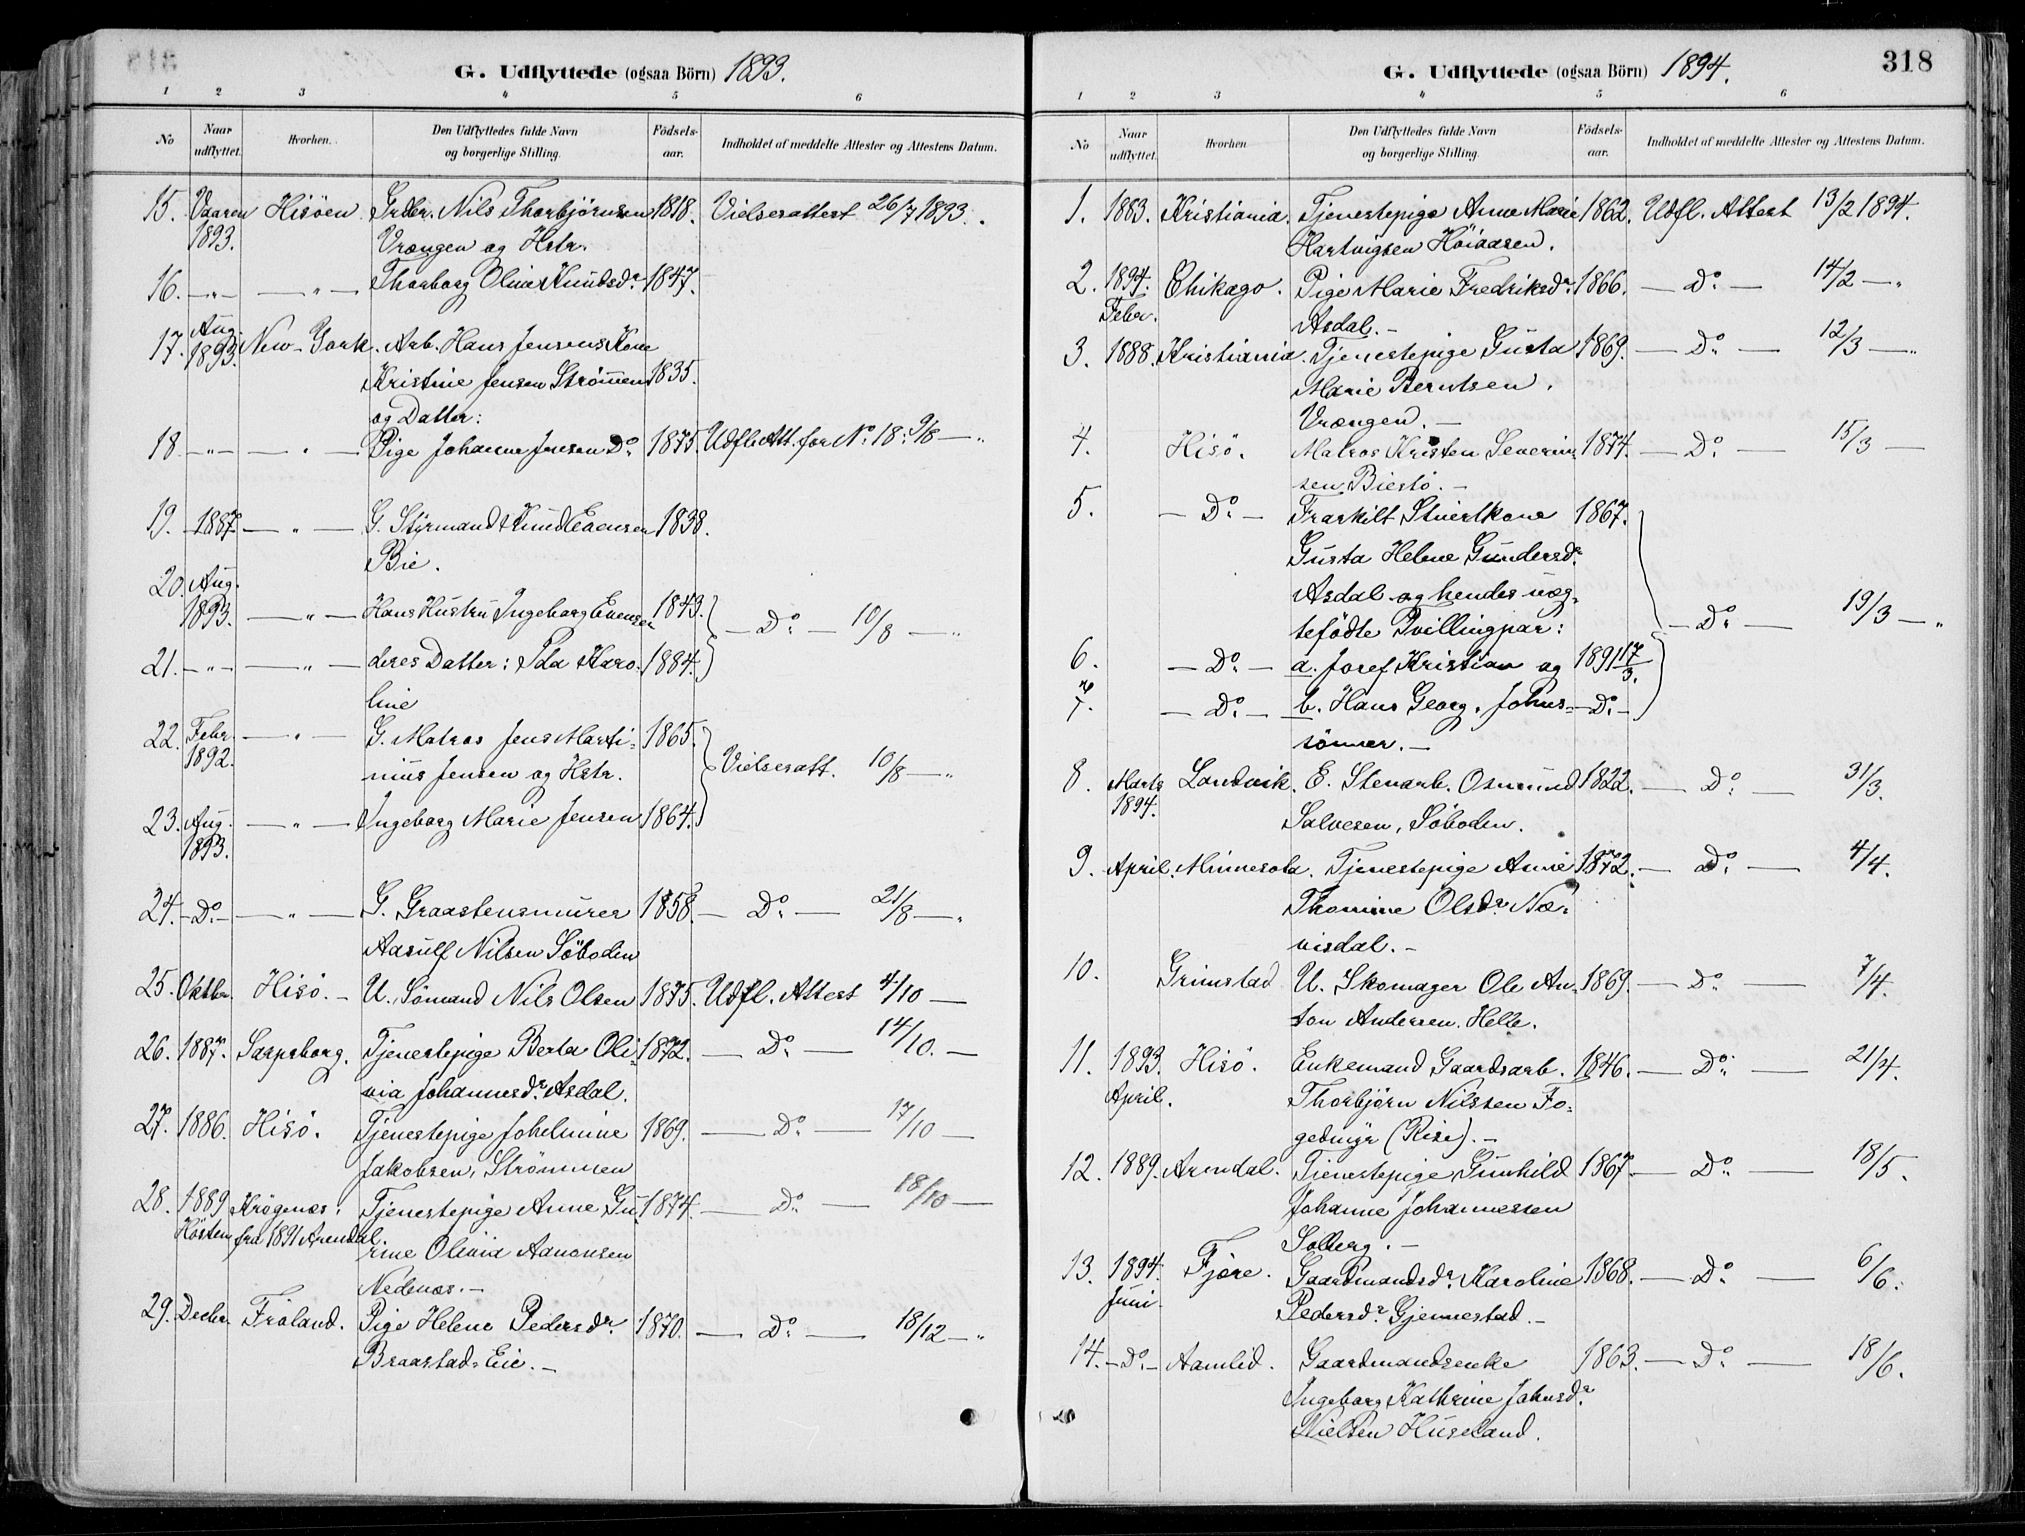 G. Udflyttede (ogsaa Börn) 1893.
1 2 3 4 5 6
No Naar udflyttet. Hvorhen. Den Udflyttedes fulde Navn og borgerlige Stilling. Födsels-aar. Indholdet af meddelte Attester og Attestens Datum.
15. Vaaren Hisöen Nils Thorbjörnsen 1818. Vielsesattest 26/7 1893.
1893. Vrængen og Hstr.
16. -„- — „ — Thorborg Oline Knudsdr. 1847.
Aug.
17. 1893. New-York. Arb. Hans Jensens Kone
Kristine Jensen Strömmen 1835.
og Datter:
18. -„- — „ — Pige Johanne Jensen Do. 1875. Udfl. Att. for No. 18: 9/8 — „
19. 1887. — „ — G. Styrmand Knud Evensen 1838.
Bie.
20. Aug.
1893. — „ — Hans Hustru Ingeborg Evensen 1843.
— Do. — 10/8 — „
21. -„- — „ — deres Datter: Ida Karo- 1884.
line
22. Febr. — „ — G. Matros Jens Marti- 1865.
1892. nius Jensen og Hstr. Vielsesatt. 10/8 — „
23. Aug. — „ — Ingeborg Marie Jensen 1864.
1893.
24. -Do.- — „ — G. Graastensmurer 1858. — Do. — 21/8 — „
Aasulf Nilsen Söboden
25. Oktbr. Hisö. - U. Sömand Nils Olsen 1875. Udfl. Attest 4/10 —
26. 1887. Sarpsborg. Tjenestepige Berta Oli- 1872. — Do. — 14/10. —
via Johannesdr. Asdal.
27. 1886. Hisö. Tjenestepige Johelmine 1869. — Do. — 17/10 —
Jakobsen, Strömmen
28. 1889 Krögenæs. Tjenestepige Anne Gu- 1874. — Do. — 18/10 —
Hösten fra 1891 Arendal.
rine Olivia Aanonsen
Nedenæs. -
29. Decbr. Fröland. Pige Helene Pedersdr. 1870. — Do. — 18/12 — „
Braastad-Eie. -
318
G. Udflyttede (ogsaa Börn) 1894.
1 2 3 4 5 6
No Naar udflyttet. Hvorhen Den Udflyttedes fulde Navn og borgerlige Stilling. Födsels-aar. Indholdet af meddelte Attester og Attestens Datum.
1. 1883. Kristiania. Tjenestepige Anne Marie 1862. Udfl. Attest 13/2 1894.
Hartvigsen Höiaasen.
2. 1894. Chikago. Pige Marie Fredriksdr. 1866. — Do. — 14/2 — „
Febr. Asdal. -
3. 1888. Kristiania. Tjenestepige Gusta 1869. — Do. — 12/3 — „
Marie Berntsen.
Vrængen. -
4. Hisö. Matros Kristen Severin- 1874. — Do. — 15/3 —
sen Biestö. -
5. — Do. — Fraskilt Stuertkone 1867.
Gusta Helene Gundersdr.
Asdal og hendes uæg-
tefödte Tvillingpar: — Do. — 19/3 — „
6. — Do. — a. Josef Kristian og 1891 17/3.
7. — Do. — b. Hans Georg, Johns- — Do. —
sönner. -
8. Marts Landvik. E. Stenarb. Osmund 1822. — Do. — 31/3.
1894. Salvesen, Söboden.
9. April. Minnesota. Tjenestepige Anne 1872. — Do. — 4/4.
Thomine Olsdr. Næ-
visdal. -
10. Grimstad U. Skomager Ole An- 1869. — Do. — 7/4.
ton Andersen. Helle.
11. 1893. Hisö. Enkemand Gaardsarb. 1846. — Do. — 21/4.
April. Thorbjörn Nilssen Fo-
gedmyr (Rise). -
12. 1889. Arendal. Tjenestepige Gunhild 1867. — Do. — 18/5.
Johanne Johannessen
Solberg. -
13. 1894. Fjære. Gaardmandsdr. Karoline 1868. — Do. — 6/6.
Juni. Pedersdr. Gjennestad. -
14. -Do.- Aamlid. Gaardmandsenke 1863. — Do. — 18/6.
Ingeborg Kathrine Johnsdr.
Nielsen Huseland.